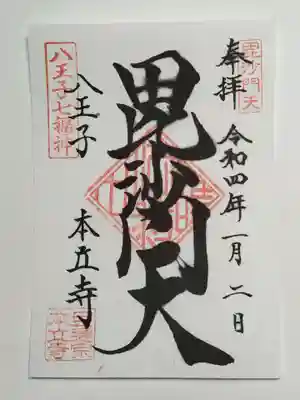 毘沙門天
奉拝
令和四年一月二日
毘沙門天
八王子七福神
八王子
本立寺